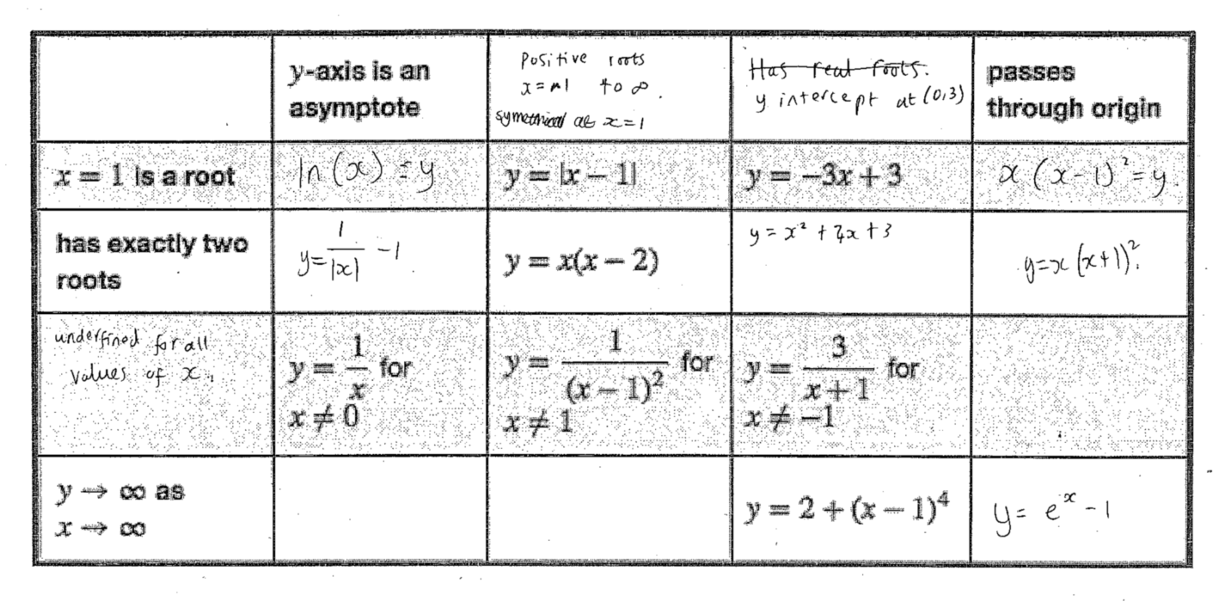 y-axis is an
asymptote
Positive roots
x = 1 to ∞.
symmetrical at x=1
Has real roots.
y intercept at (0,3)
passes
through origin
x = 1 is a root
ln(x) = y
y = |x − 1|
y = −3x + 3
x(x−1)² = y.
has exactly two
roots
y = 1/|x| − 1
y = x(x − 2)
y = x² + 4x + 3
y=x(x+1)².
underfined for all
values of x.
y = 1/x for
x ≠ 0
y = 1/(x − 1)² for
x ≠ 1
y = 3/(x + 1) for
x ≠ −1
y → ∞ as
x → ∞
y = 2 + (x − 1)⁴
y = eˣ − 1